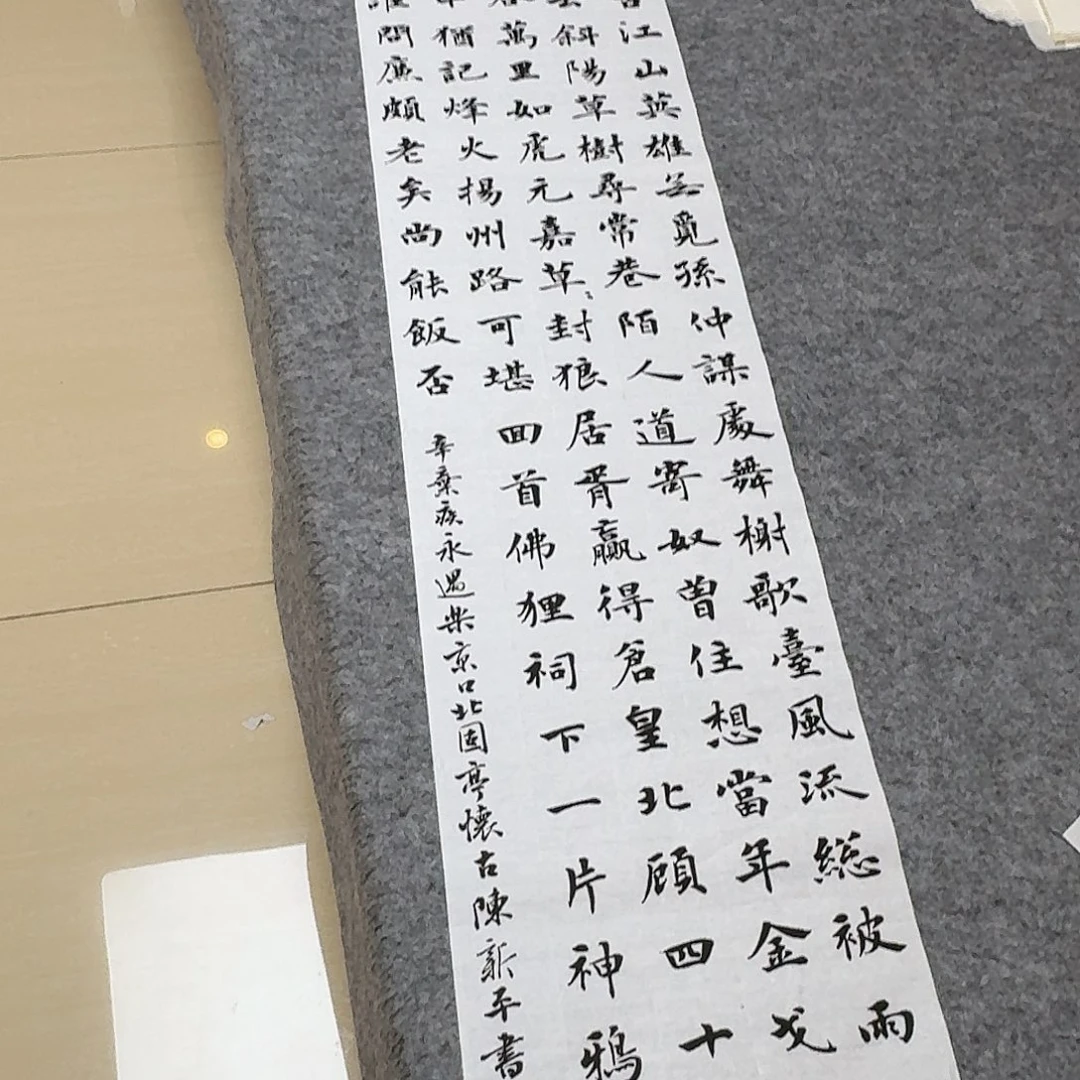 古江山英雄無覓孫仲謀處舞榭歌臺風流総被雨
去斜陽草樹尋常巷陌人道寄奴曾住想當年金戈
吞萬里如虎元嘉草〻封狼居胥贏得倉皇北顧四十
中猶記烽火揚州路可堪回首佛狸祠下一片神鴉
誰問廉頗老矣尚能飯否
辛棄疾永遇樂京口北固亭懷古陳新平書